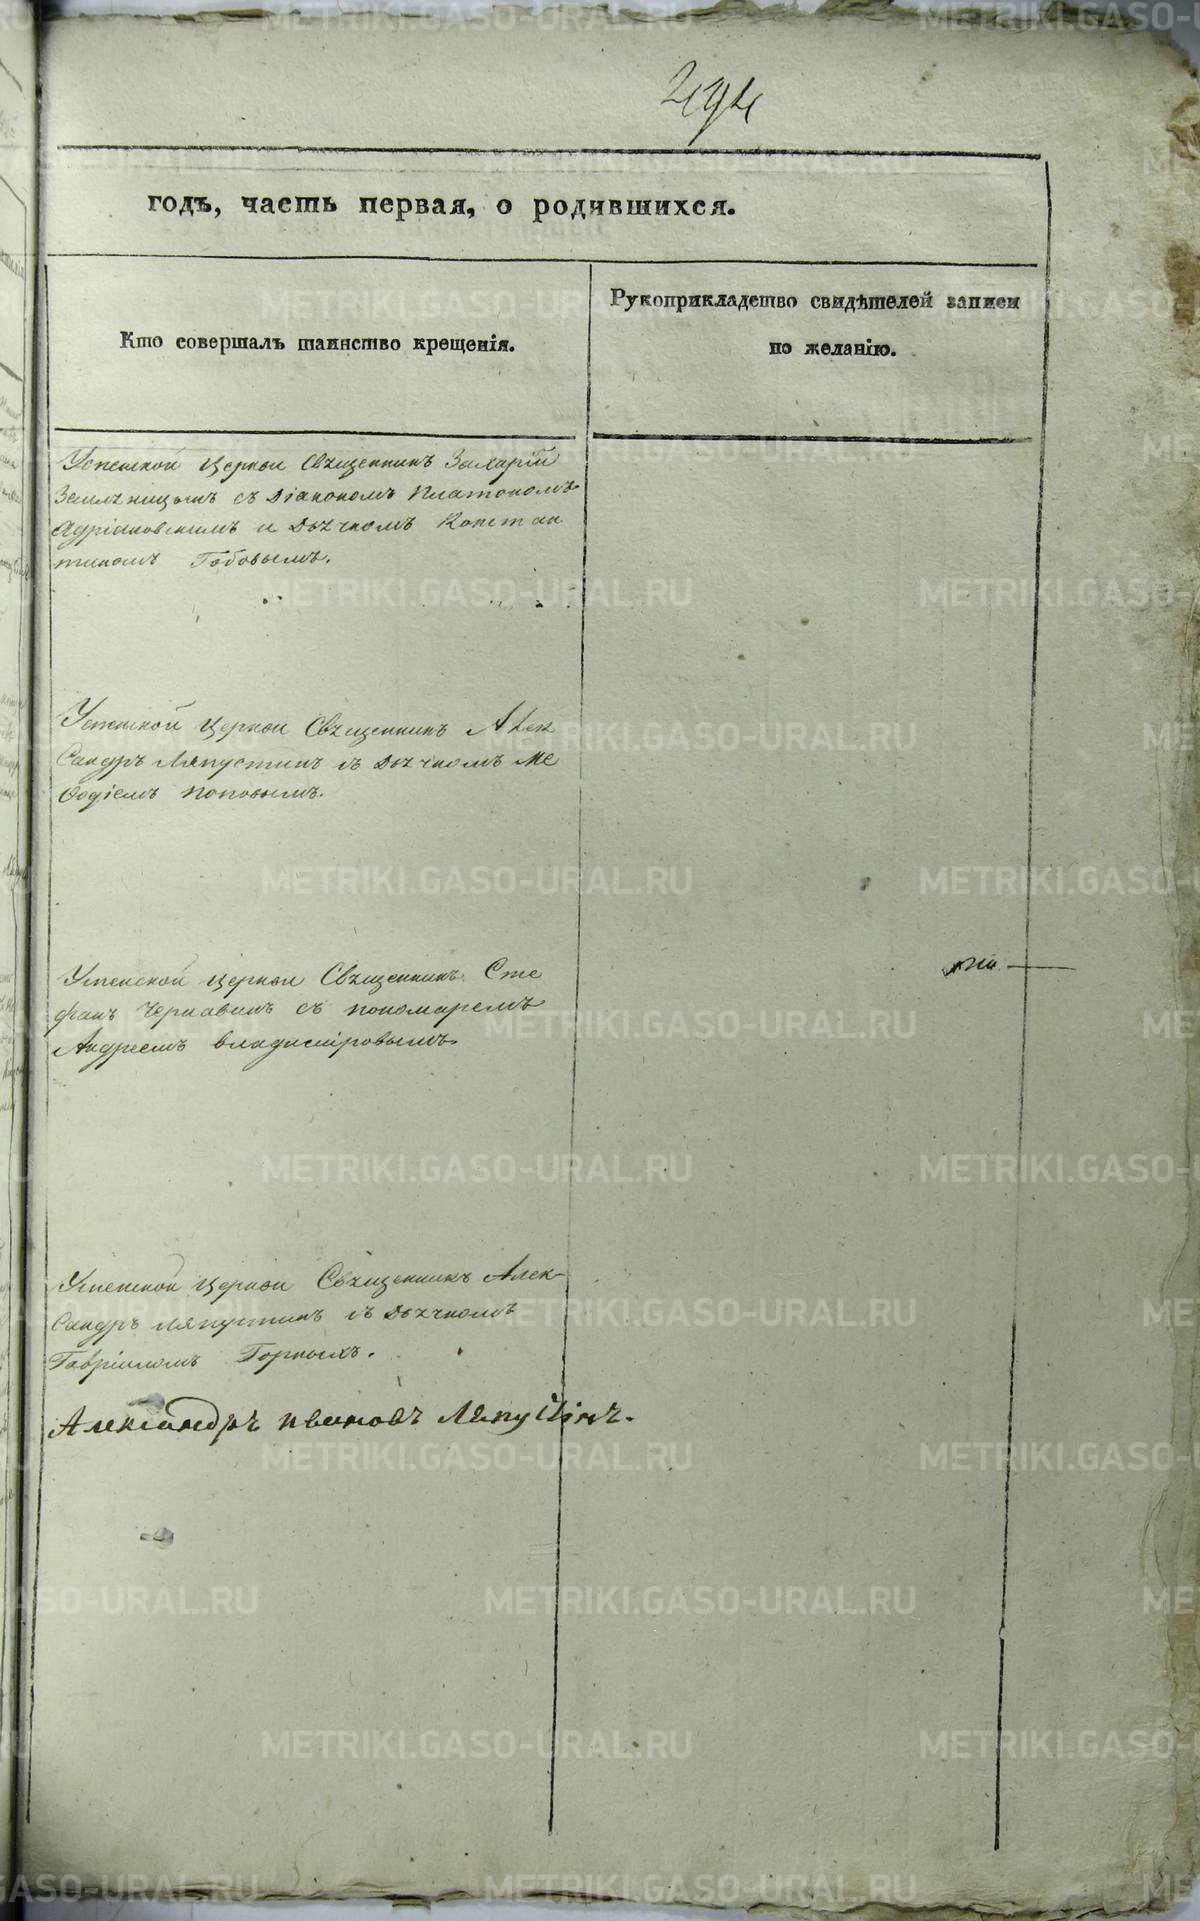 294
годъ, часть первая, о родившихся.
Кто совершалъ таинство крещенія.
Рукоприкладство свидѣтелей записи
по желанію.
Успенской Церкви Священникъ Захарій
Земляницынъ съ Діакономъ Платономъ
Адріановскимъ и Дьячкомъ Констан
тиномъ Гобовымъ.
Успенской Церкви Священникъ Алек
сандръ Ляпустинъ съ Дьячкомъ Ме
ѳодіемъ Поповымъ.
Успенской Церкви Священникъ Сте
фанъ Чернавинъ съ пономаремъ
Андреемъ Владиміровымъ.
Успенской Церкви Священникъ Алек
сандръ Ляпустинъ съ Дьячкомъ
Гавріиломъ Горныхъ.
Александръ Ивановъ Ляпустинъ.
METRIKI.GASO-URAL.RU